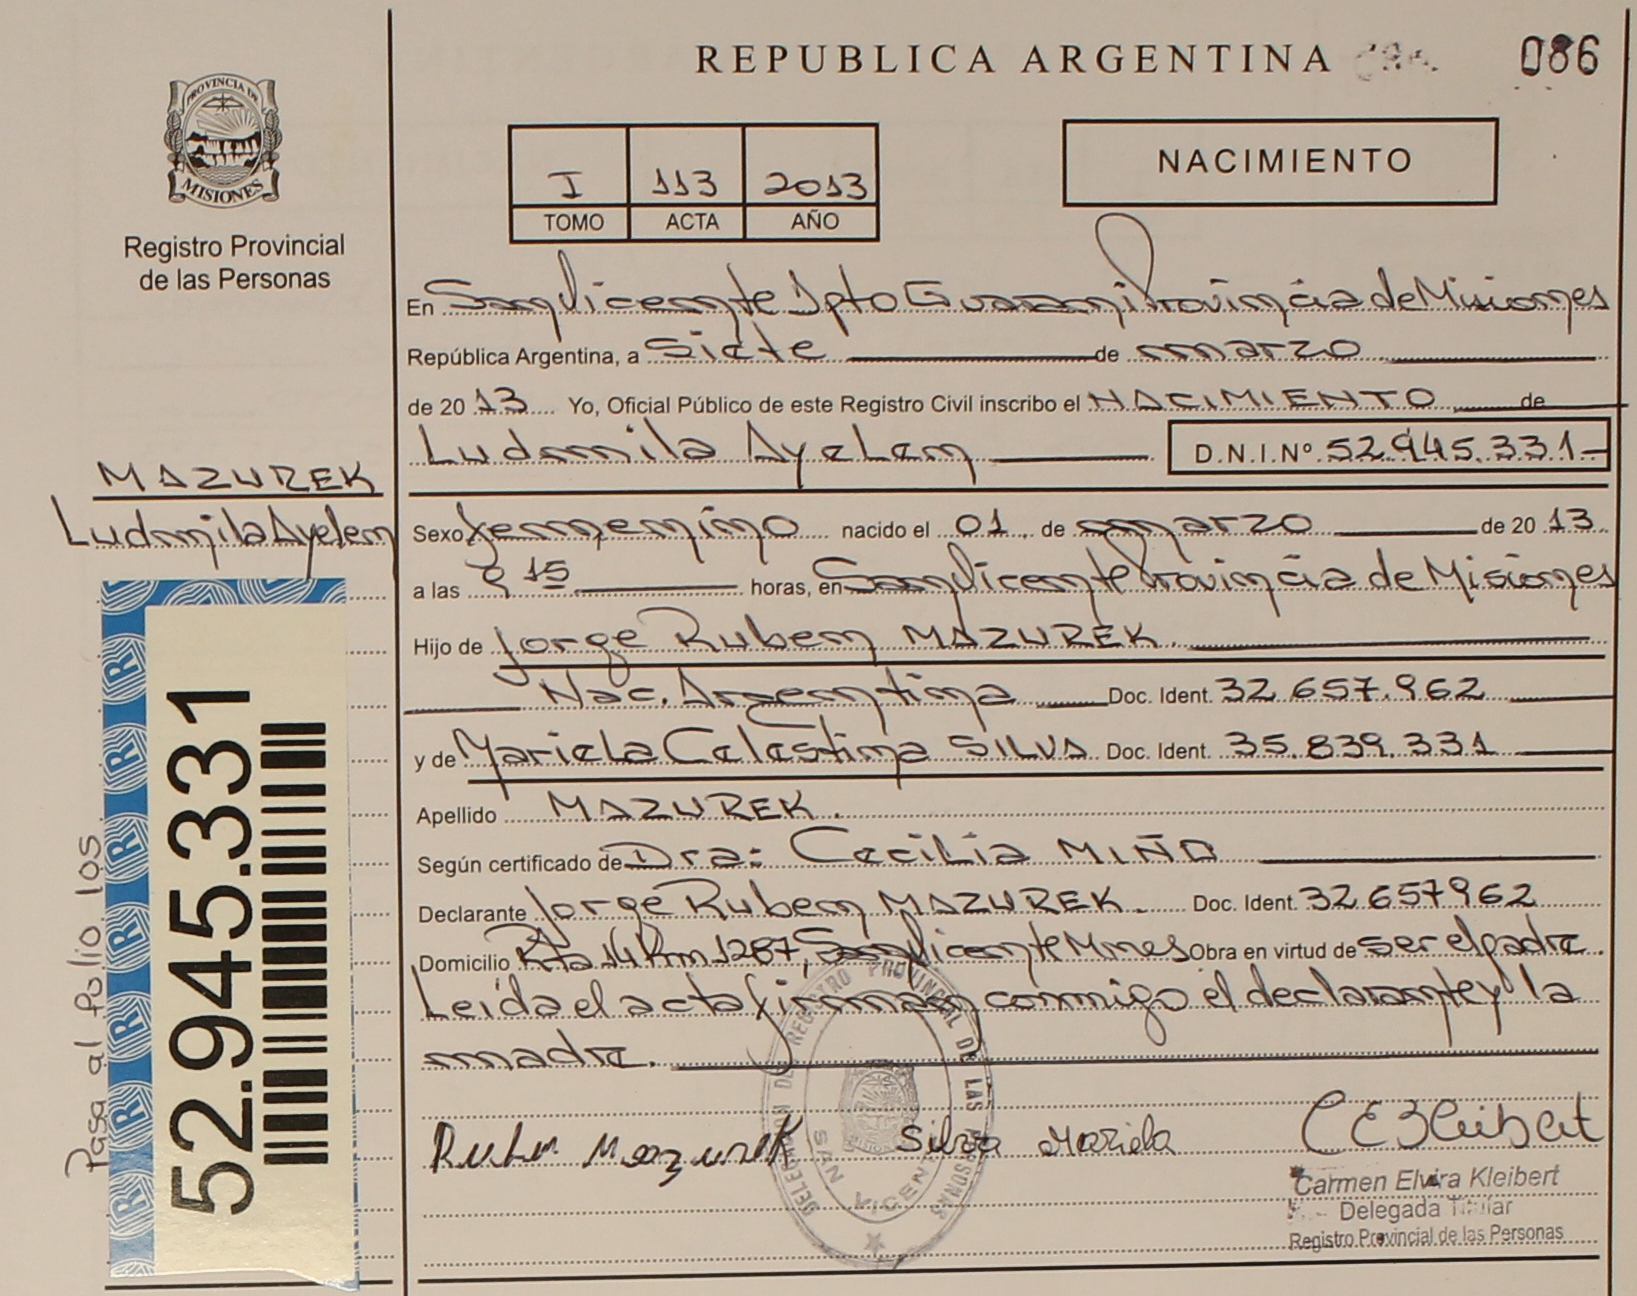 REPUBLICA ARGENTINA
086
PROVINCIA DE
MISIONES
Registro Provincial
de las Personas
I 113 2013
TOMO ACTA AÑO
NACIMIENTO
En San Vicente Dpto Guarani Provincia de Misiones
República Argentina, a siete de marzo
de 2013 Yo, Oficial Público de este Registro Civil inscribo el NACIMIENTO de
Ludmila Ayelen D.N.I.Nº 52.945.331-
MAZUREK
Ludmila Ayelen
Sexo femenino nacido el 01 de marzo de 2013
a las 9 15 horas, en San Vicente Provincia de Misiones
Hijo de Jorge Ruben MAZUREK.
Nac. Argentina Doc. Ident. 32.657.962
y de Mariela Celestina SILVA Doc. Ident. 35.839.331
Apellido MAZUREK.
Según certificado de Dra: Cecilia MIÑO
Declarante Jorge Ruben MAZUREK. Doc. Ident. 32657962
Domicilio Rta 14 Km 1287, San Vicente Mnes Obra en virtud de ser el padre.
Leida el acta firman conmigo el declarante y la
madre.
52.945.331
Pasa al folio los
R R R R R R R
DELEGACION DE REGISTRO PROVINCIAL DE LAS PERSONAS
SAN VICENTE
Ruben Mazurek
Silva Mariela
C E Kleibert
Carmen Elvira Kleibert
Delegada Titular
Registro Provincial de las Personas